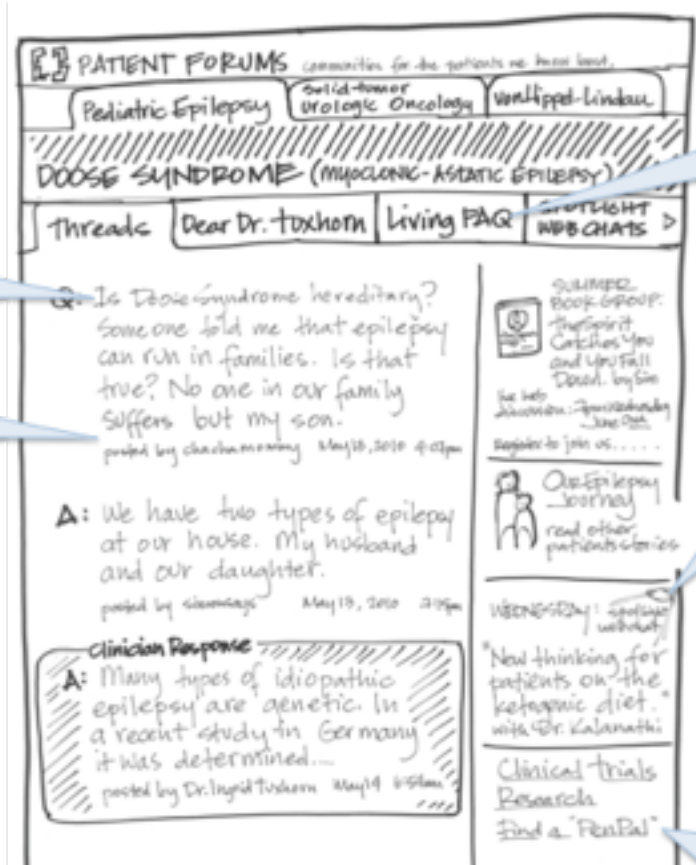 PATIENT FORUMS communities for the patients we know best.
Pediatric Epilepsy
Solid-tumor
Urologic Oncology
Von Hippel-Lindau
DOOSE SYNDROME (MYOCLONIC-ASTATIC EPILEPSY)
Threads
Dear Dr. Tuxhorn
Living FAQ
SPOTLIGHT
WEB CHATS >
Q: Is Doose Syndrome hereditary?
Someone told me that epilepsy
can run in families. Is that
true? No one in our family
suffers but my son.
posted by chachamommy May 13, 2010
A: We have two types of epilepsy
at our house. My husband
and our daughter.
posted by simonsays May 13, 2010
Clinician Response
A: Many types of idiopathic
epilepsy are genetic. In
a recent study in Germany
it was determined....
posted by Dr. Ingrid Tuxhorn May 14
SUMMER
BOOK GROUP:
The Spirit
Catches You
and You Fall
Down.
discussion:
Register to join us.....
Our Epilepsy
Journey
read other
patients stories
WEDNESDAY: spotlight
webchat
"New thinking for
patients on the
ketogenic diet."
with Dr. Kalanathi
Clinical trials
Research
Find a "PenPal"